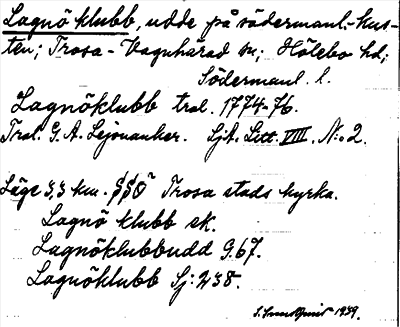 Lagnö klubb, udde på södermanl.-kus-
ten; Trosa-Vagnhärad sn; Hölebo hd;
Södermanl. l.
Lagnöklubb tral. 1774-76.
Tral. G. A. Lejonanker. Sjk. Litt. VIII. N:o 2.
Läge 3,3 km. SSO Trosa stads kyrka.
Lagnö klubb sk.
Lagnöklubbudd G.67.
Lagnöklubb Sj: 238.
1939.